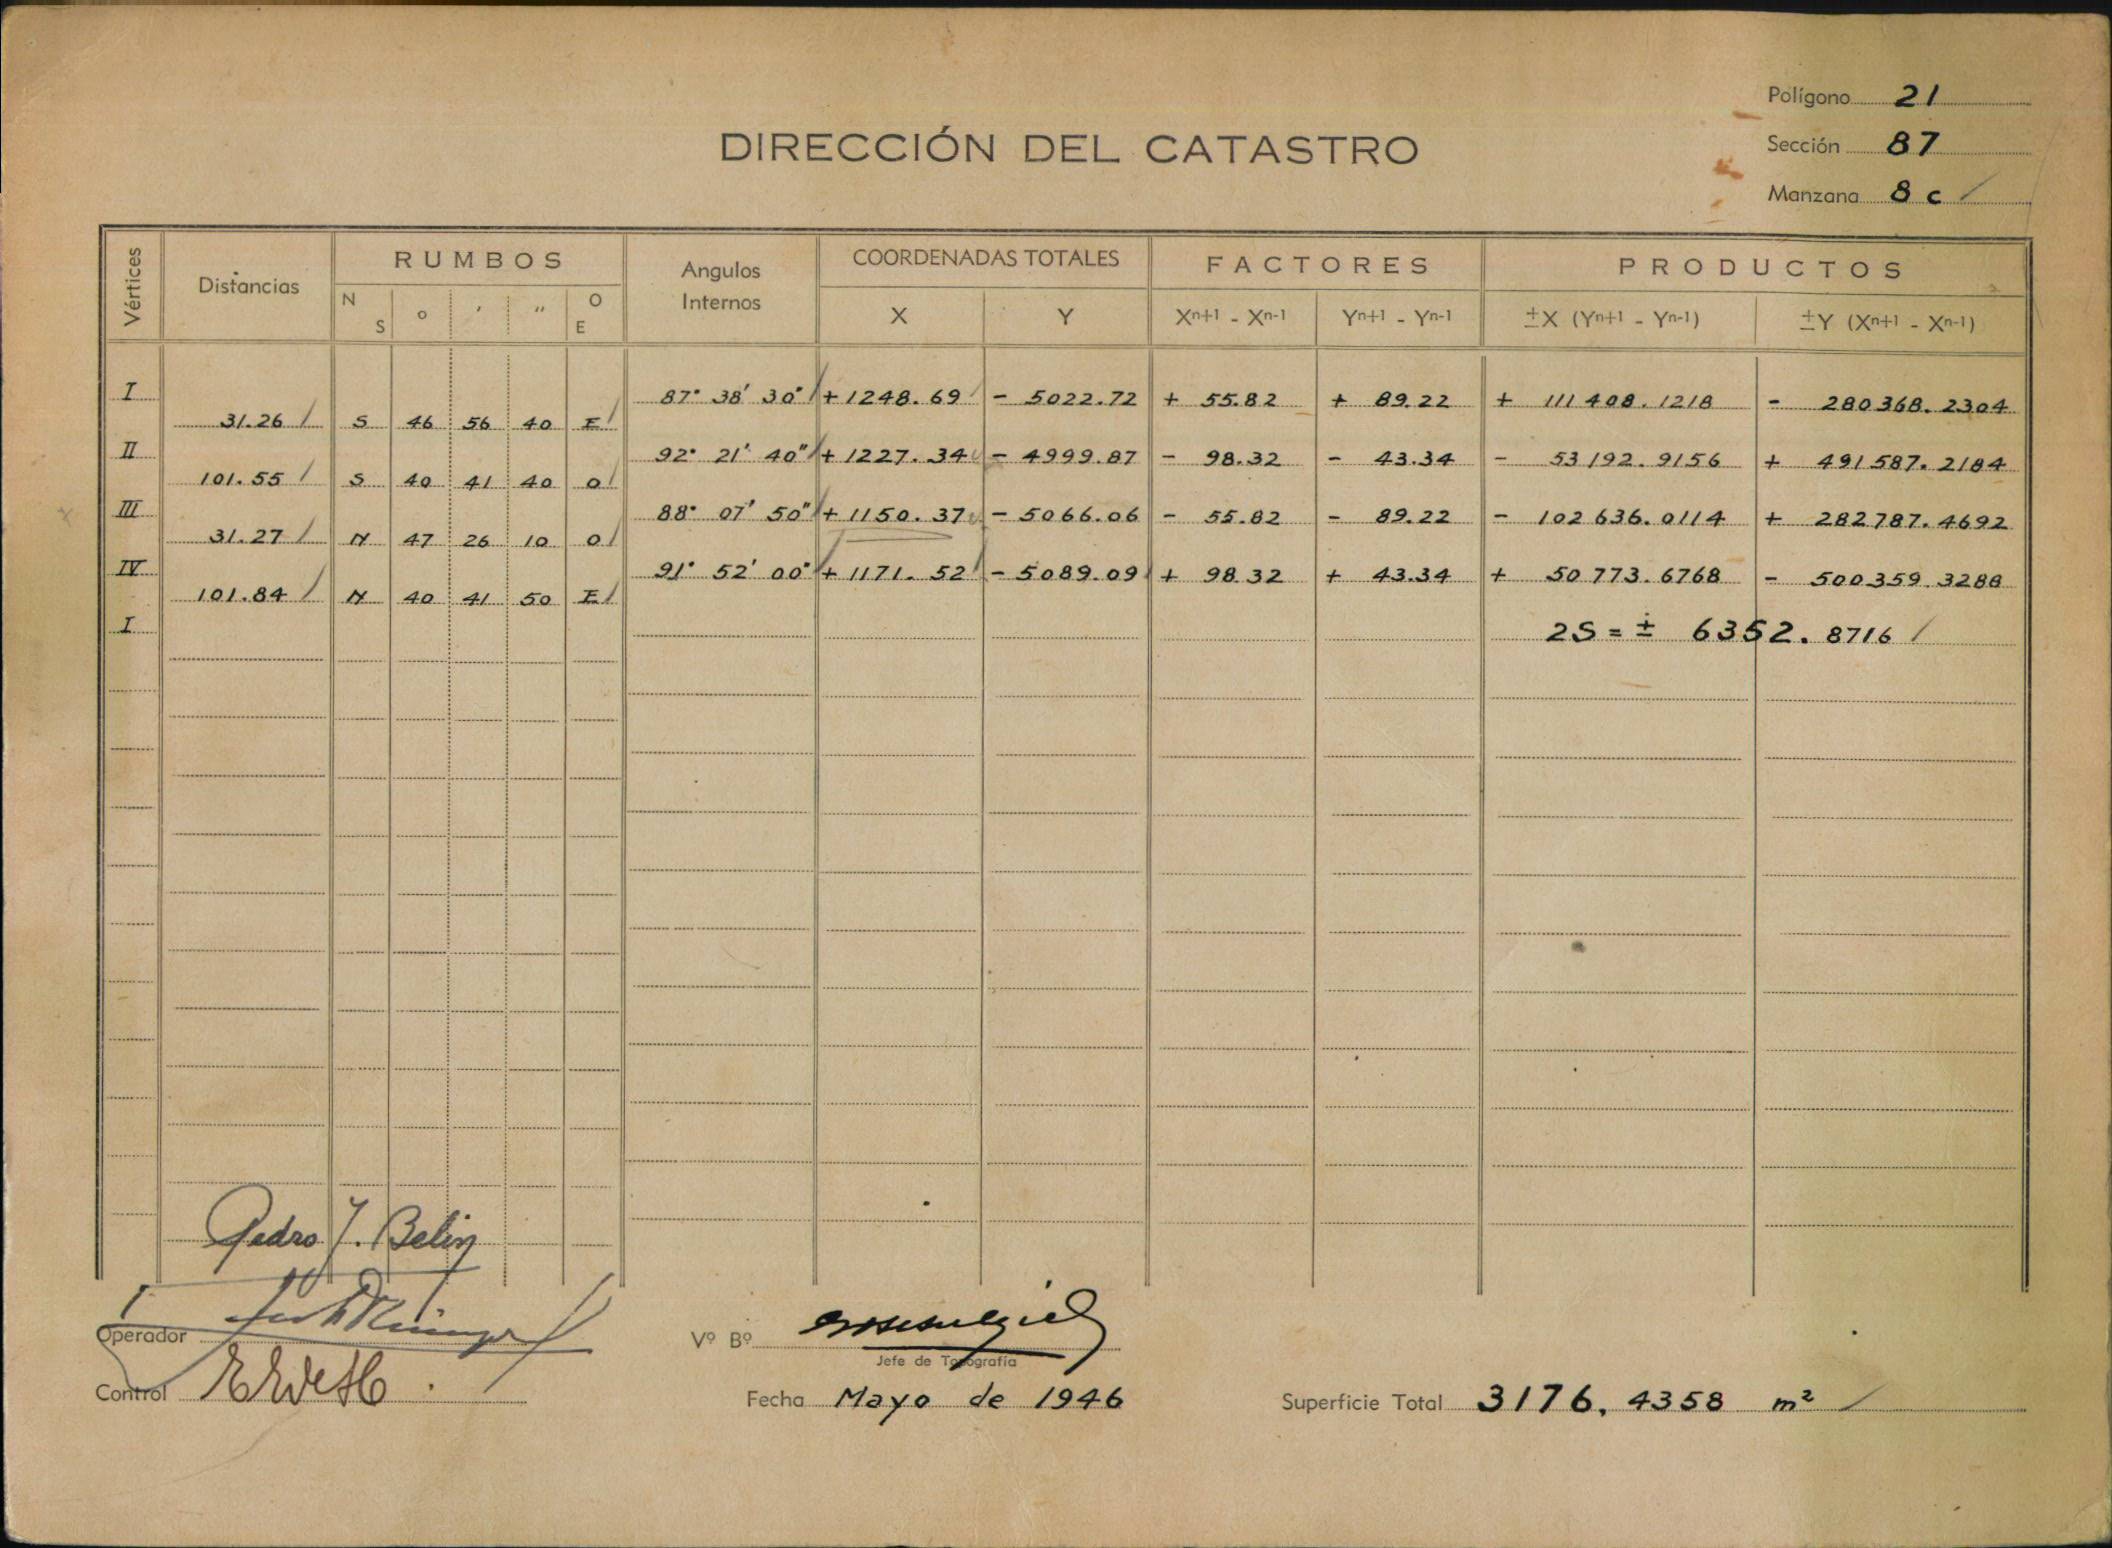 Polígono 21
DIRECCIÓN DEL CATASTRO
Sección 87
Manzana 8 c
Vértices Distancias RUMBOS Angulos Internos COORDENADAS TOTALES FACTORES PRODUCTOS
N S ° ' " O E X Y Xn+1 - Xn-1 Yn+1 - Yn-1 ±X (Yn+1 - Yn-1) ±Y (Xn+1 - Xn-1)
I 87° 38' 30" + 1248.69 - 5022.72 + 55.82 + 89.22 + 111408.1218 - 280368.2304
31.26 S 46 56 40 E
II 92° 21' 40" + 1227.34 - 4999.87 - 98.32 - 43.34 - 53192.9156 + 491587.2184
101.55 S 40 41 40 O
III 88° 07' 50" + 1150.37 - 5066.06 - 55.82 - 89.22 - 102636.0114 + 282787.4692
31.27 N 47 26 10 O
IV 91° 52' 00" + 1171.52 - 5089.09 + 98.32 + 43.34 + 50773.6768 - 500359.3288
101.84 N 40 41 50 E
I 2S = ± 6352.8716
Pedro J. Belin
Operador
Vº Bº
Jefe de Topografía
Control
Fecha Mayo de 1946
Superficie Total 3176.4358 m²